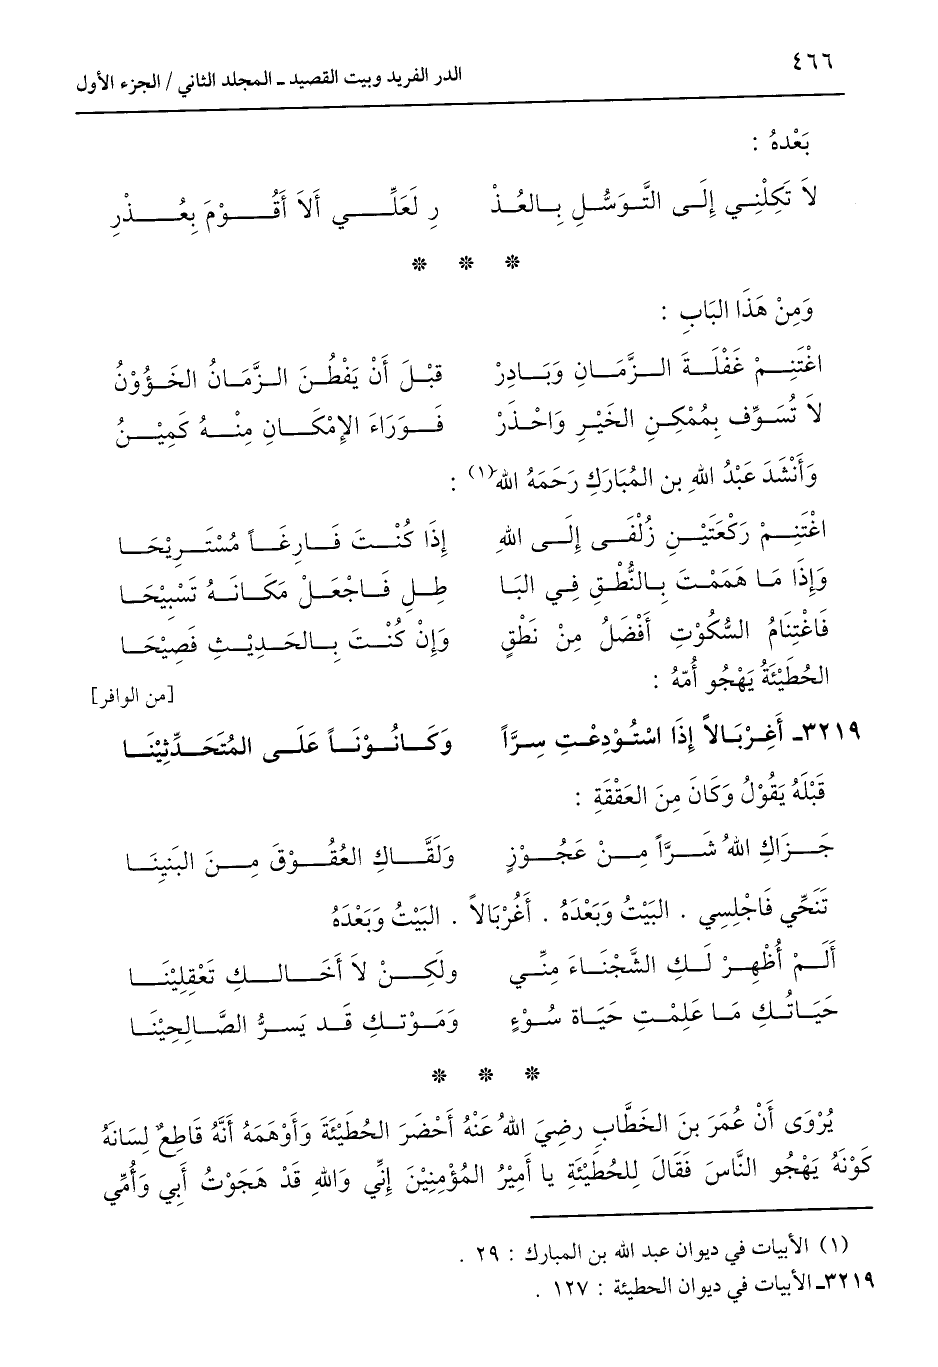 ٤٦٦
الدر الفريد وبيت القصيد - المجلد الثاني / الجزء الأول
بَعْدهُ :
لاَ تَكِلْنِي إِلَى التَّوَسُّلِ بِالعُذْ رِ لَعَلِّي أَلاَ أَقُوْمَ بِعُذْرِ
* * *
وَمِنْ هَذَا البَابِ :
اغْتَنِمْ غَفْلَةَ الزَّمَانِ وَبَادِرْ قَبْلَ أَنْ يَفْطُنَ الزَّمَانُ الخَؤُوْنُ
لاَ تُسَوِّف بِمُمْكِنِ الخَيْرِ وَاحْذَرْ فَوَرَاءَ الإِمْكَانِ مِنْهُ كَمِيْنُ
وَأَنْشَدَ عَبْدُ اللهِ بن المُبَارَكِ رَحَمَهُ اللهُ(١) :
اغْتَنِمْ رَكْعَتَيْنِ زُلْفَى إِلَى اللهِ إِذَا كُنْتَ فَارِغَاً مُسْتَرِيْحَا
وَإِذَا مَا هَمَمْتَ بِالنُّطْقِ فِي البَا طِلِ فَاجْعَلْ مَكَانَهُ تَسْبِيْحَا
فَاغْتِنَامُ السُّكُوْتِ أَفْضَلُ مِنْ نَطْقٍ وَإِنْ كُنْتَ بِالحَدِيْثِ فَصِيْحَا
الحُطَيْئَةُ يَهْجُو أُمّهُ :
[من الوافر]
٣٢١٩- أَغِرْبَالاً إِذَا اسْتُوْدِعْتِ سِرَّاً وَكَانُوْنَاً عَلَى المُتَحَدِّثِيْنَا
قَبْلَهُ يَقُوْلُ وَكَانَ مِنَ العَقَقَةِ :
جَزَاكِ اللهُ شَرَّاً مِنْ عَجُوْزٍ وَلَقَّاكِ العُقُوْقَ مِنَ البَنِيْنَا
تَنَحِّي فَاجْلِسِي . البَيْتُ وَبَعْدَهُ . أَغُرْبَالاً . البَيْتُ وَبَعْدَهُ
أَلَمْ أُظْهِرْ لَكِ الشَّجْنَاءَ مِنِّي ولَكِنْ لاَ أَخَالكِ تَعْقِلِيْنَا
حَيَاتُكِ مَا عَلِمْتِ حَيَاة سُوْءٍ وَمَوْتكِ قَد يَسرُّ الصَّالِحِيْنَا
* * *
يُرْوَى أَنْ عُمَرَ بنَ الخَطَّابِ رضِيَ اللهُ عَنْهُ أَحْضَرَ الحُطَيْئَةَ وَأَوْهَمَهُ أَنَّهُ قَاطِعٌ لِسَانَهُ
كَوْنَهُ يَهْجُو النَّاسَ فَقَالَ لِلحُطَيْئَةِ يا أَمِيْرُ المُؤْمِنِيْنَ إِنِّي وَاللهِ قَدْ هَجَوْتُ أَبِي وَأُمِّي
(١) الأبيات في ديوان عبد الله بن المبارك : ٢٩ .
٣٢١٩- الأبيات في ديوان الحطيئة : ١٢٧ .